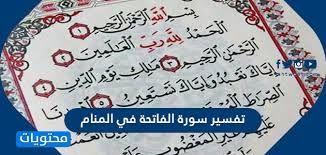 بِسْمِ اللَّهِ الرَّحْمَٰنِ الرَّحِيمِ
الْحَمْدُ لِلَّهِ رَبِّ الْعَالَمِينَ
الرَّحْمَٰنِ الرَّحِيمِ ٣ مَالِكِ يَوْمِ الدِّينِ
إِيَّاكَ نَعْبُدُ وَإِيَّاكَ نَسْتَعِينُ ٥
الصِّرَاطَ
تفسير سورة الفاتحة في المنام
الْمَغْضُوبِ
محتويات